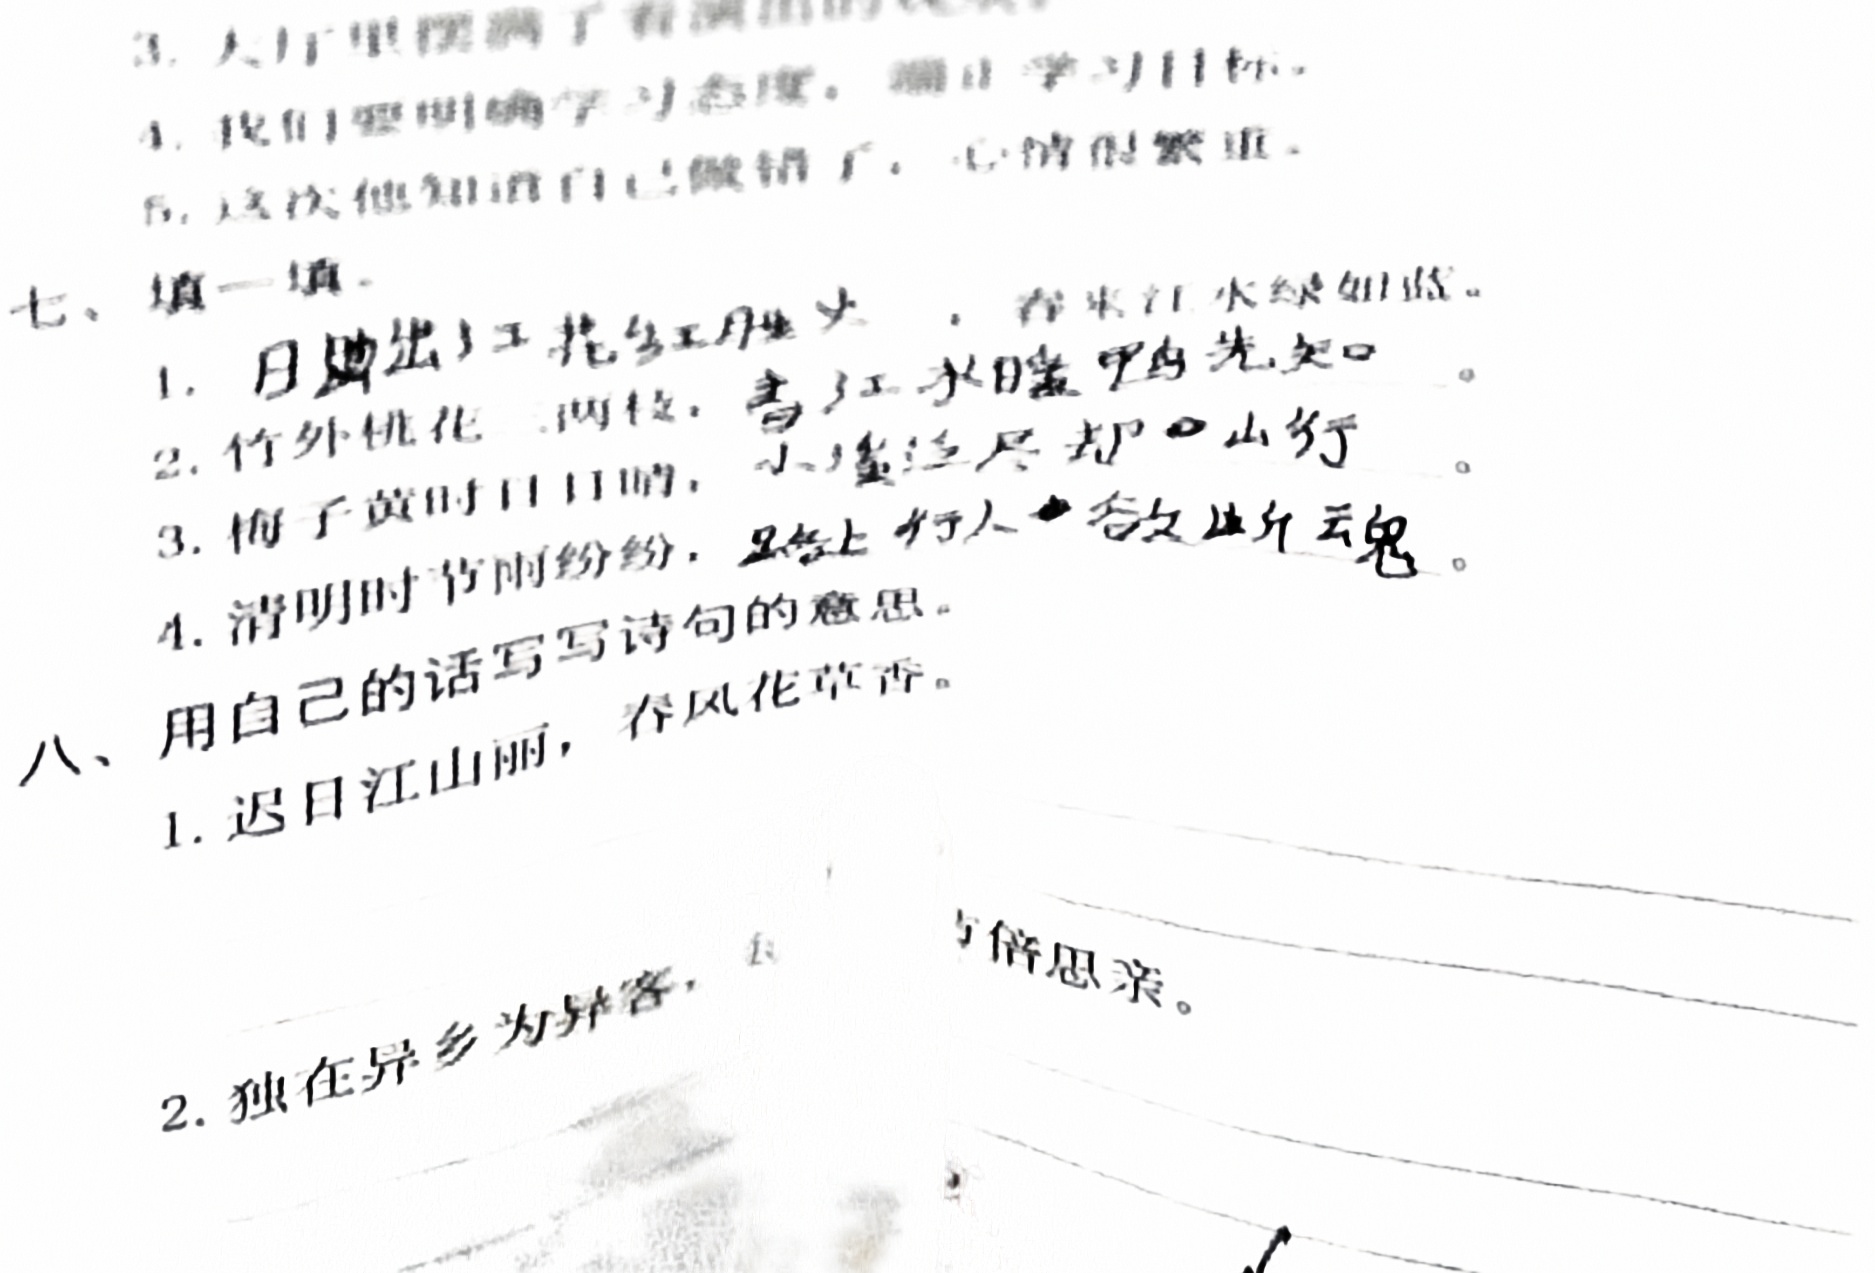 3. 大厅里摆满了
4. 我们要明确学习态度，端正学习目标。
5. 这次他知道自己做错了，心情很繁重。
七、填一填。
1. 日出江花红胜火，春来江水绿如蓝。
2. 竹外桃花三两枝，春江水暖鸭先知。
3. 梅子黄时日日晴，小溪泛尽却山行。
4. 清明时节雨纷纷，路上行人欲断魂。
八、用自己的话写写诗句的意思。
1. 迟日江山丽，春风花草香。
2. 独在异乡为异客，倍思亲。